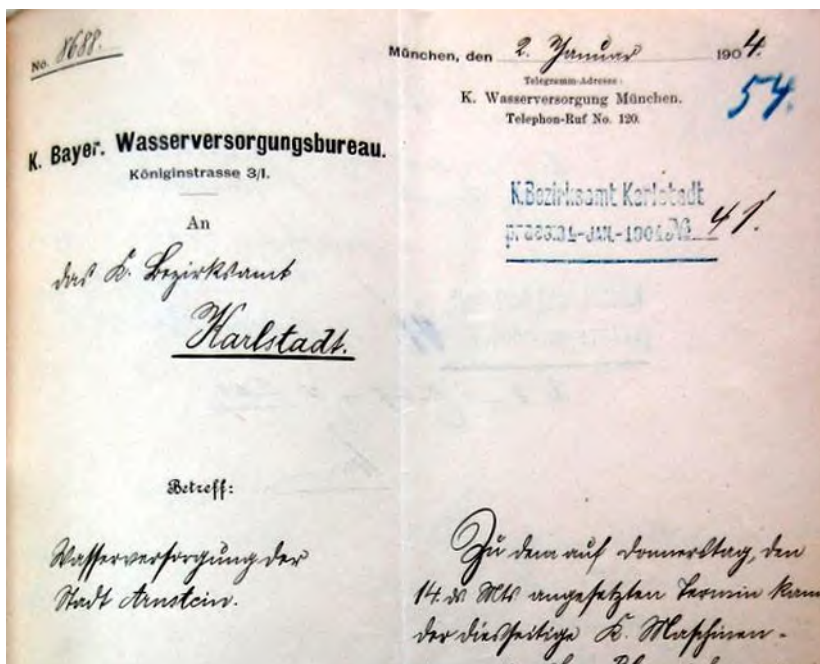 No. 8688.
München, den 2. Januar 1904.
Telegramm-Adresse:
K. Wasserversorgung München.
Telephon-Ruf No. 120.
54.
K. Bayer. Wasserversorgungsbureau.
Königinstrasse 3/I.
An
das K. Bezirksamt
Karlstadt.
K.Bezirksamt Karlstadt
praes. 4-JAN.-1904 № 41.
Betreff:
Wasserversorgung der
Stadt Arnstein.
Zu dem auf Donnerstag, den
14. ds Mts angesetzten Termin kann
der diesseitige K. Maschinen-